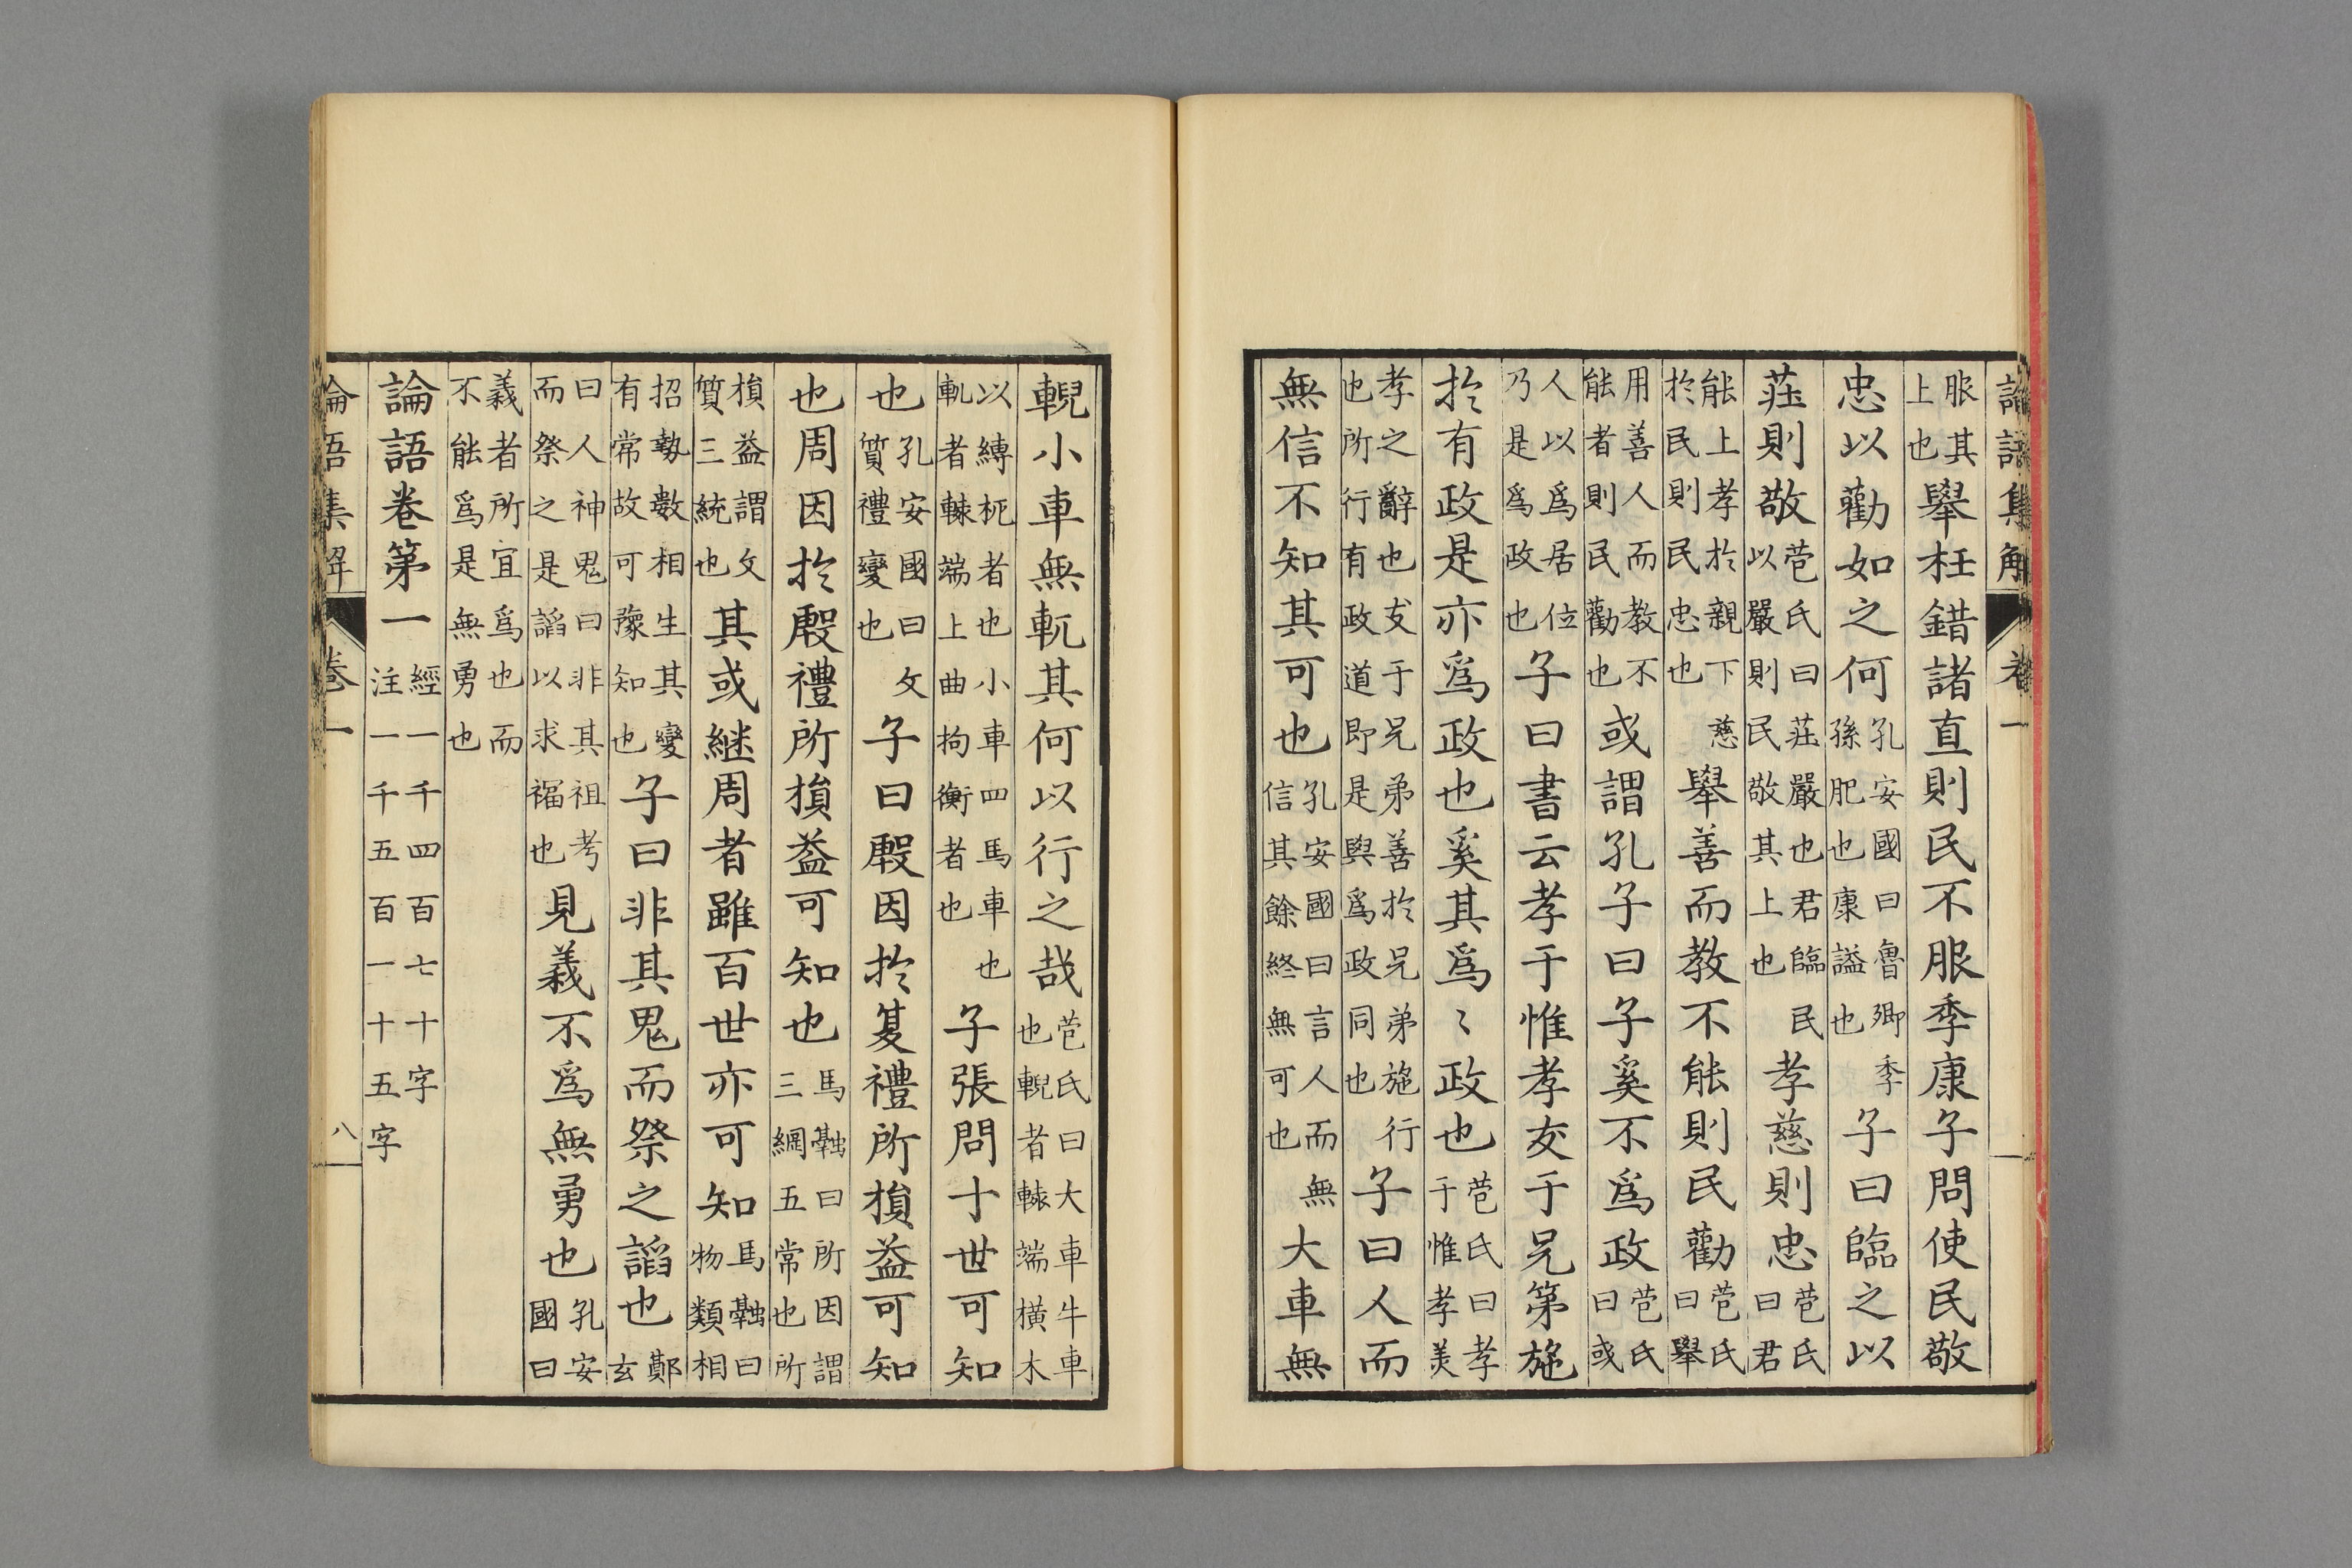 論語集解 卷一
服其上也舉枉錯諸直則民不服季康子問使民敬
忠以勸如之何孔安國曰魯卿季孫肥也康謚也子曰臨之以
莊則敬苞氏曰莊嚴也君臨民以嚴則民敬其上也孝慈則忠苞氏曰君
能上孝於親下慈於民則民忠也舉善而教不能則民勸苞氏曰舉
用善人而教不能者則民勸也或謂孔子曰子奚不爲政苞氏曰或
人以爲居位乃是爲政也子曰書云孝于惟孝友于兄第施
於有政是亦爲政也奚其爲〻政也苞氏曰孝于惟孝美
孝之辭也友于兄弟善於兄弟施行也所行有政道即是與爲政同也子曰人而
無信不知其可也孔安國曰言人而無信其餘終無可也大車無
輗小車無軏其何以行之哉苞氏曰大車牛車也輗者轅端横木
以縛枙者也小車四馬車也軏者轅端上曲拘衡者也子張問十世可知
也孔安國曰文質禮變也子曰殷因於夏禮所損益可知
也周因於殷禮所損益可知也馬融曰所因謂三綱五常也所
損益謂文質三統也其或継周者雖百世亦可知馬融曰物類相
招勢數相生其變有常故可豫知也子曰非其鬼而祭之諂也鄭玄
曰人神鬼曰非其祖考而祭之是諂以求福也見義不爲無勇也孔安國曰
義者所宜爲也而不能爲是無勇也
論語卷第一經一千四百七十字注一千五百一十五字
論語集解 卷一 八